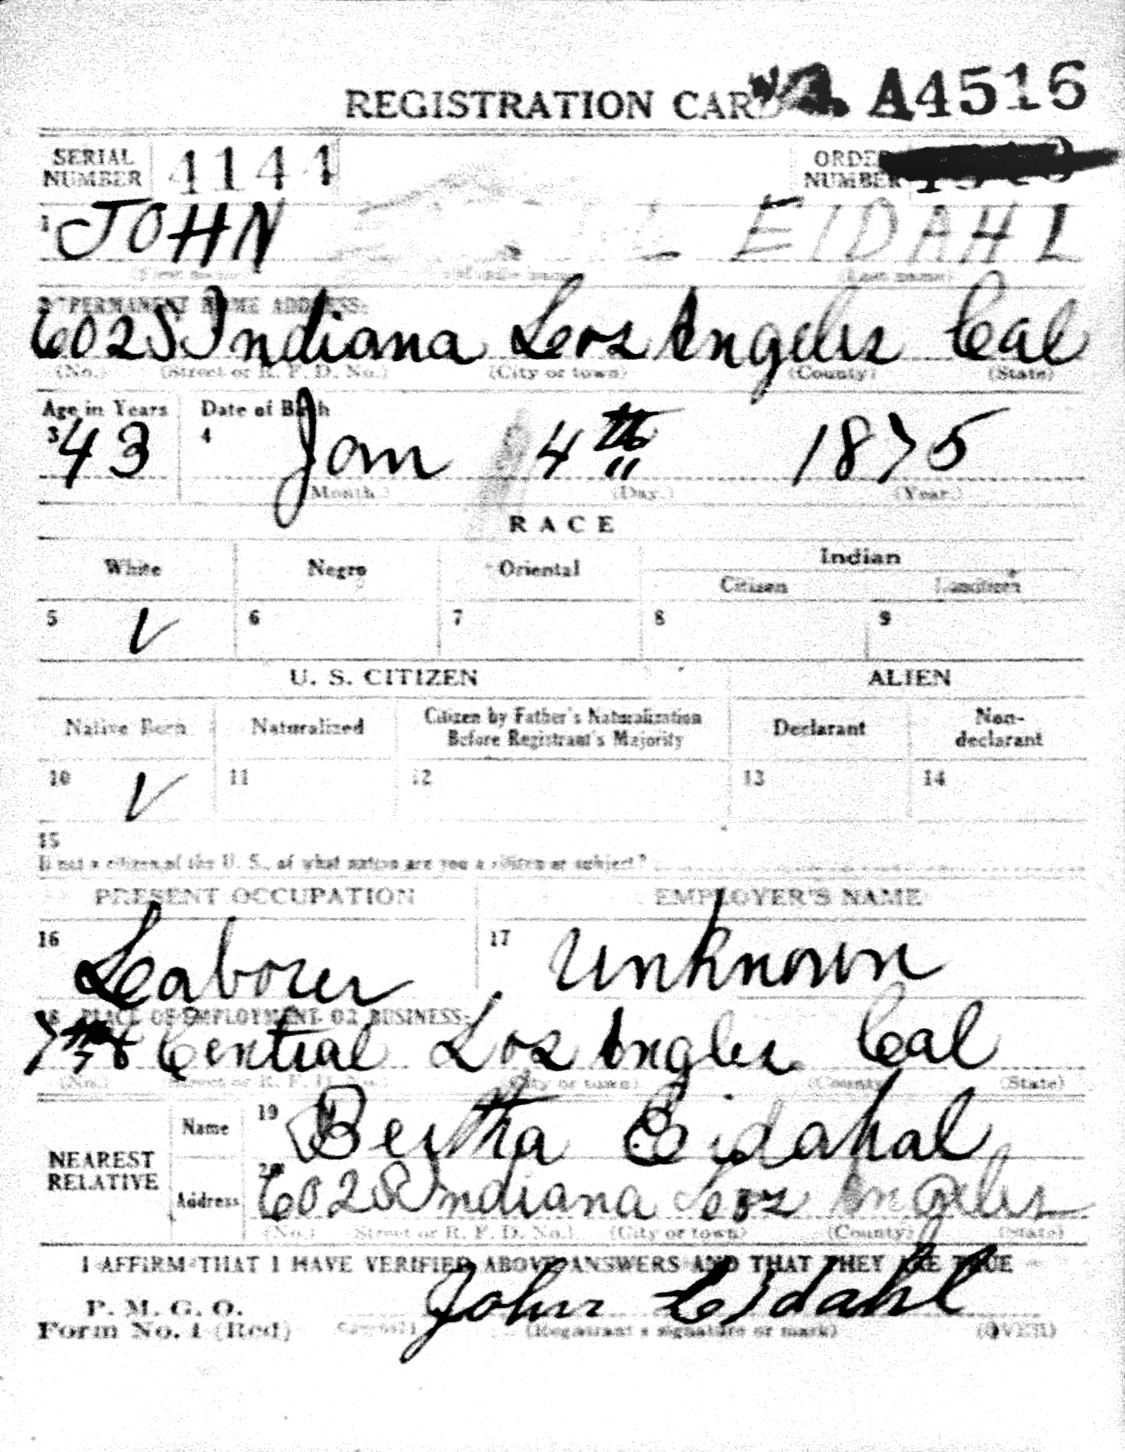 REGISTRATION CARD A4516
SERIAL NUMBER 4144 ORDER NUMBER
1 JOHN EIDAHL
(First name) (Middle name) (Last name)
2 PERMANENT HOME ADDRESS:
602 S Indiana Los Angeles Cal
(No.) (Street or R. F. D. No.) (City or town) (County) (State)
Age in Years Date of Birth
3 43 4 Jan 4th 1875
(Month.) (Day.) (Year.)
RACE
White Negro Oriental Indian
Citizen Noncitizen
5 V 6 7 8 9
U. S. CITIZEN ALIEN
Native Born Naturalized Citizen by Father's Naturalization Before Registrant's Majority Declarant Non-declarant
10 V 11 12 13 14
15
If not a citizen of the U. S., of what nation are you a citizen or subject?
PRESENT OCCUPATION EMPLOYER'S NAME
16 Laborer 17 Unknown
18 PLACE OF EMPLOYMENT OR BUSINESS:
7th & Central Los Angles Cal
(No.) (Street or R. F. D. No.) (City or town) (County) (State)
NEAREST RELATIVE Name 19 Bertha Eidahal
Address 20 602 S Indiana Los Angeles
(No.) (Street or R. F. D. No.) (City or town) (County) (State)
I AFFIRM THAT I HAVE VERIFIED ABOVE ANSWERS AND THAT THEY ARE TRUE
P. M. G. O.
Form No. 1 (Red) John Eidahl
(Registrant's signature or mark) (OVER)